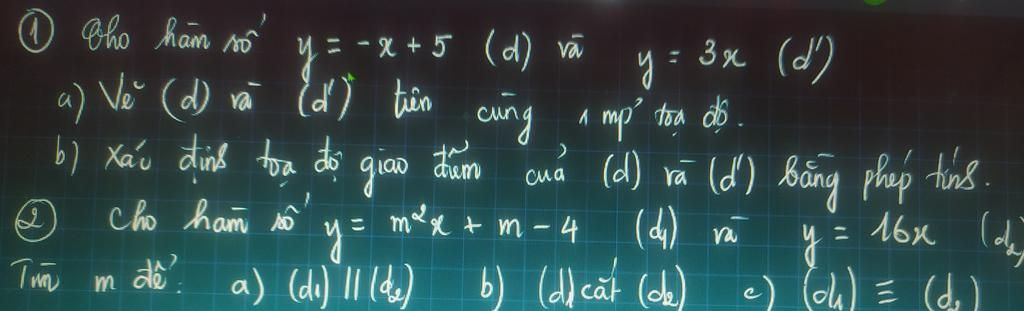 ① Cho hàm số y = -x + 5 (d) và y = 3x (d')
a) Vẽ (d) và (d') trên cùng 1 mp toạ độ.
b) Xác định toạ độ giao điểm của (d) và (d') bằng phép tính.
② Cho hàm số y = m²x + m - 4 (d₁) và y = 16x (d₂)
Tìm m để: a) (d₁) // (d₂) b) (d₁) cắt (d₂) c) (d₁) ≡ (d₂)